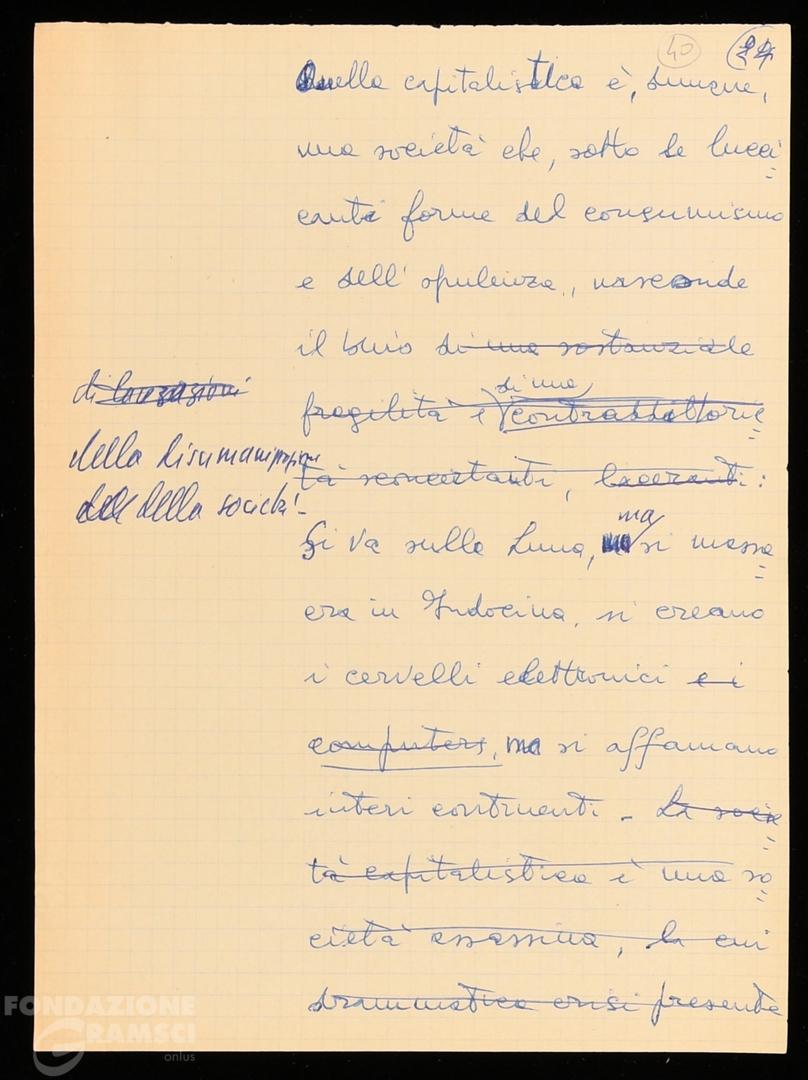 40 24
Quella capitalistica è, dunque,
una società che, sotto le lucci
canti forme del consumismo
e dell'opulenza, nasconde
il buio di una sostanziale
di una
fragilità e contraddittorie
tà sconcertanti, laceranti:
di lacerazioni
della disumanizzazione
della società.
ma
Si va sulla Luna, ma si massa
cra in Indocina, si creano
i cervelli elettronici e i
computers, ma si affamano
interi continenti. La socie
tà capitalistica è una so
cietà assassina, la cui
drammatica crisi presenta
FONDAZIONE
GRAMSCI
onlus